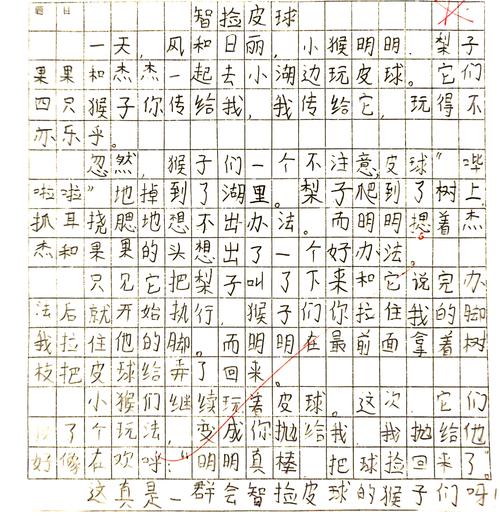 题目
智捡皮球
一天，风和日丽，小猴明明、梨子
果果和杰杰一起去小湖边玩皮球。它们
四只猴子你传给我，我传给它，玩得不
亦乐乎。
忽然，猴子们一个不注意，皮球“哗
啦啦”地掉到了湖里。梨子爬到了树上
抓耳挠腮地想不出办法。而明明摁着杰
杰和果果的头想出了一个好办法。
只见它把梨子叫了下来和它说完办
法后就开始执行，猴子们你拉住我的脚
我拉住他的脚。而明明在最前面拿着树
枝把皮球给弄了回来。
小猴们继续玩着皮球。这次，它们
了个玩法，变成你抛给我，我抛给他
好像在欢呼：“明明真棒，把球捡回来了
这真是一群会智捡皮球的猴子们呀！